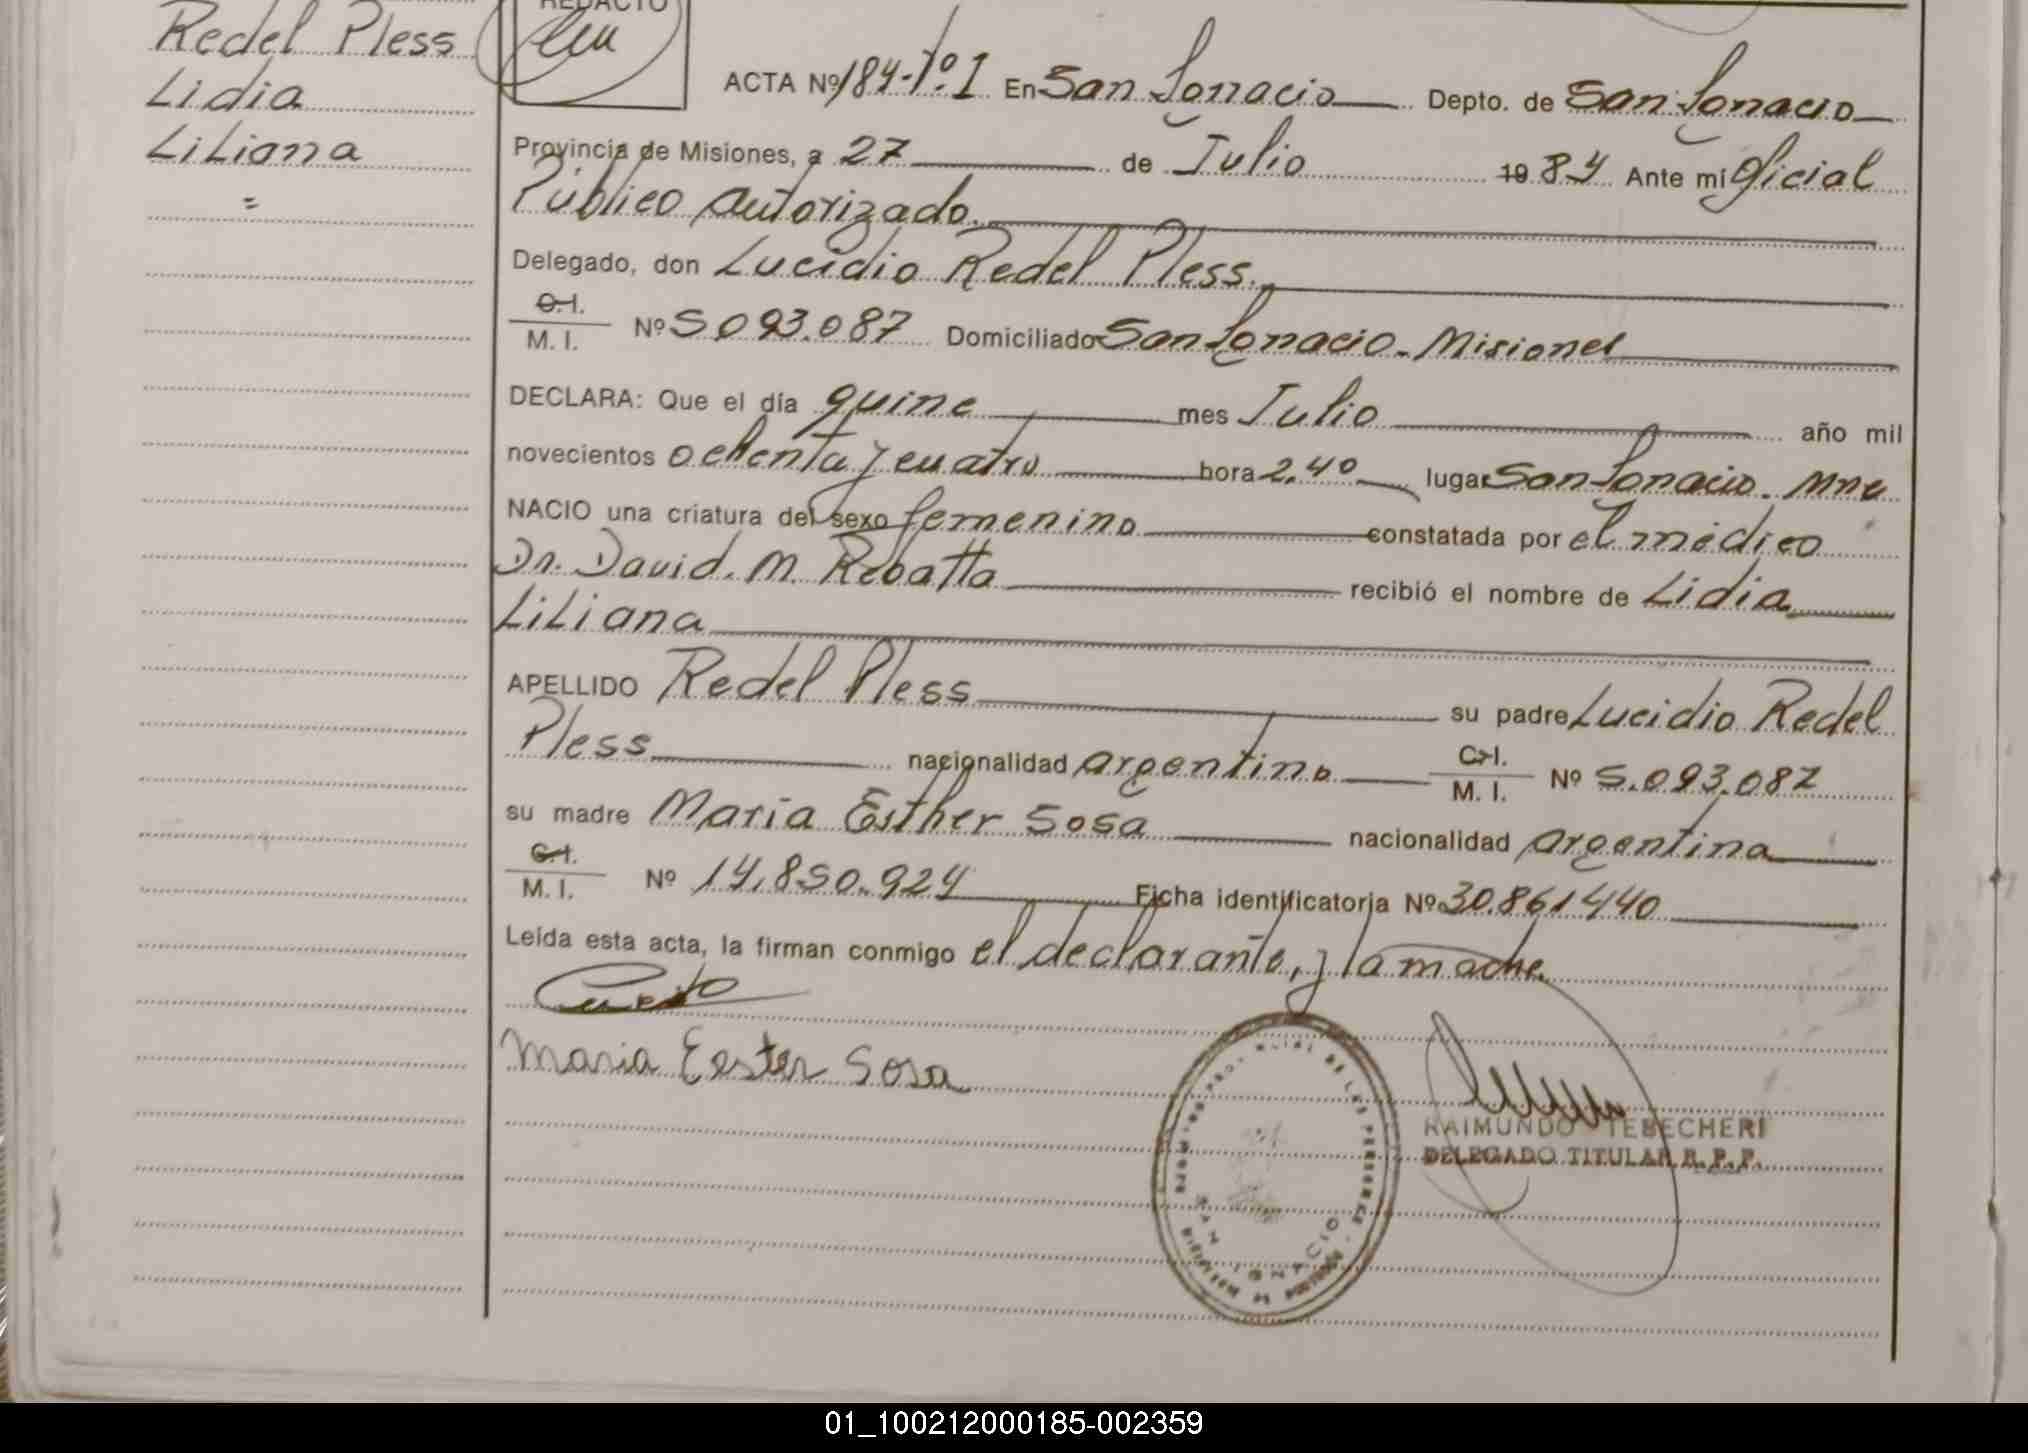 Redel Pless
Lidia
Liliana
=
REDACTO
ACTA Nº 184-Tº.I En San Ignacio Depto. de San Ignacio
Provincia de Misiones, a 27 de Julio 1984 Ante mí Oficial
Público Autorizado.
Delegado, don Lucidio Redel Pless.
C.I.
M. I. Nº 5.093.087 Domiciliado San Ignacio - Misiones
DECLARA: Que el día quine mes Julio año mil
novecientos ochenta y cuatro hora 2,40 lugar San Ignacio. Mnes
NACIO una criatura del sexo femenino constatada por el médico
Dr. David. M. Rebatta recibió el nombre de Lidia
Liliana
APELLIDO Redel Pless su padre Lucidio Redel
Pless nacionalidad argentino C.I.
M. I. Nº 5.093.087
su madre Maria Esther Sosa nacionalidad argentina
C.I.
M. I. Nº 14.850.924 Ficha identificatoria Nº 30.861440
Leída esta acta, la firman conmigo el declarante, y la madre.
Maria Eester Sosa
SAN IGNACIO
RAIMUNDO TEBECHERI
DELEGADO TITULAR R. P. P.
01_100212000185-002359